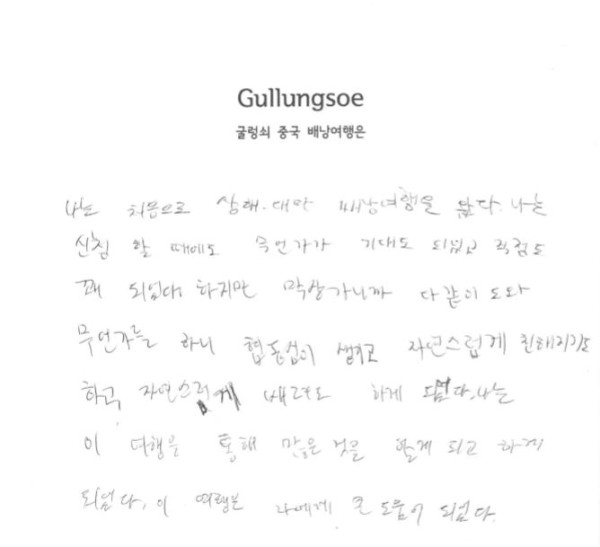 Gullungsoe
굴렁쇠 중국 배낭여행은
나는 처음으로 상해.대만 배낭여행을 왔다. 나는
신청 할 때에도 무언가가 기대도 되었고 걱정도
꽤 되었다. 하지만 막상가니까 다같이 도와
무언가를 하니 협동심이 생기고 자연스럽게 친해지기도
하고 자연스럽게 배려도 하게 됬다. 나는
이 여행을 통해 많은 것을 알게 되고 하게
되었다, 이 여행은 나에게 큰 도움이 되었다.